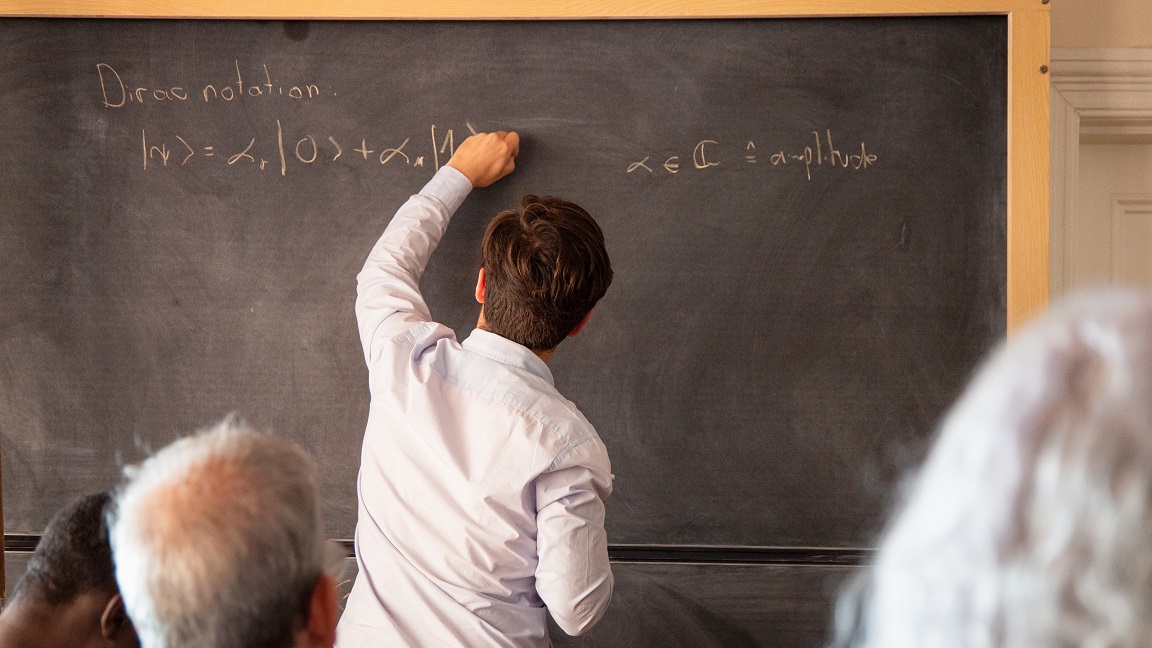 Dirac notation.
|ψ> = α₀|0> + α₁|1>
α ∈ ℂ ≙ amplitude